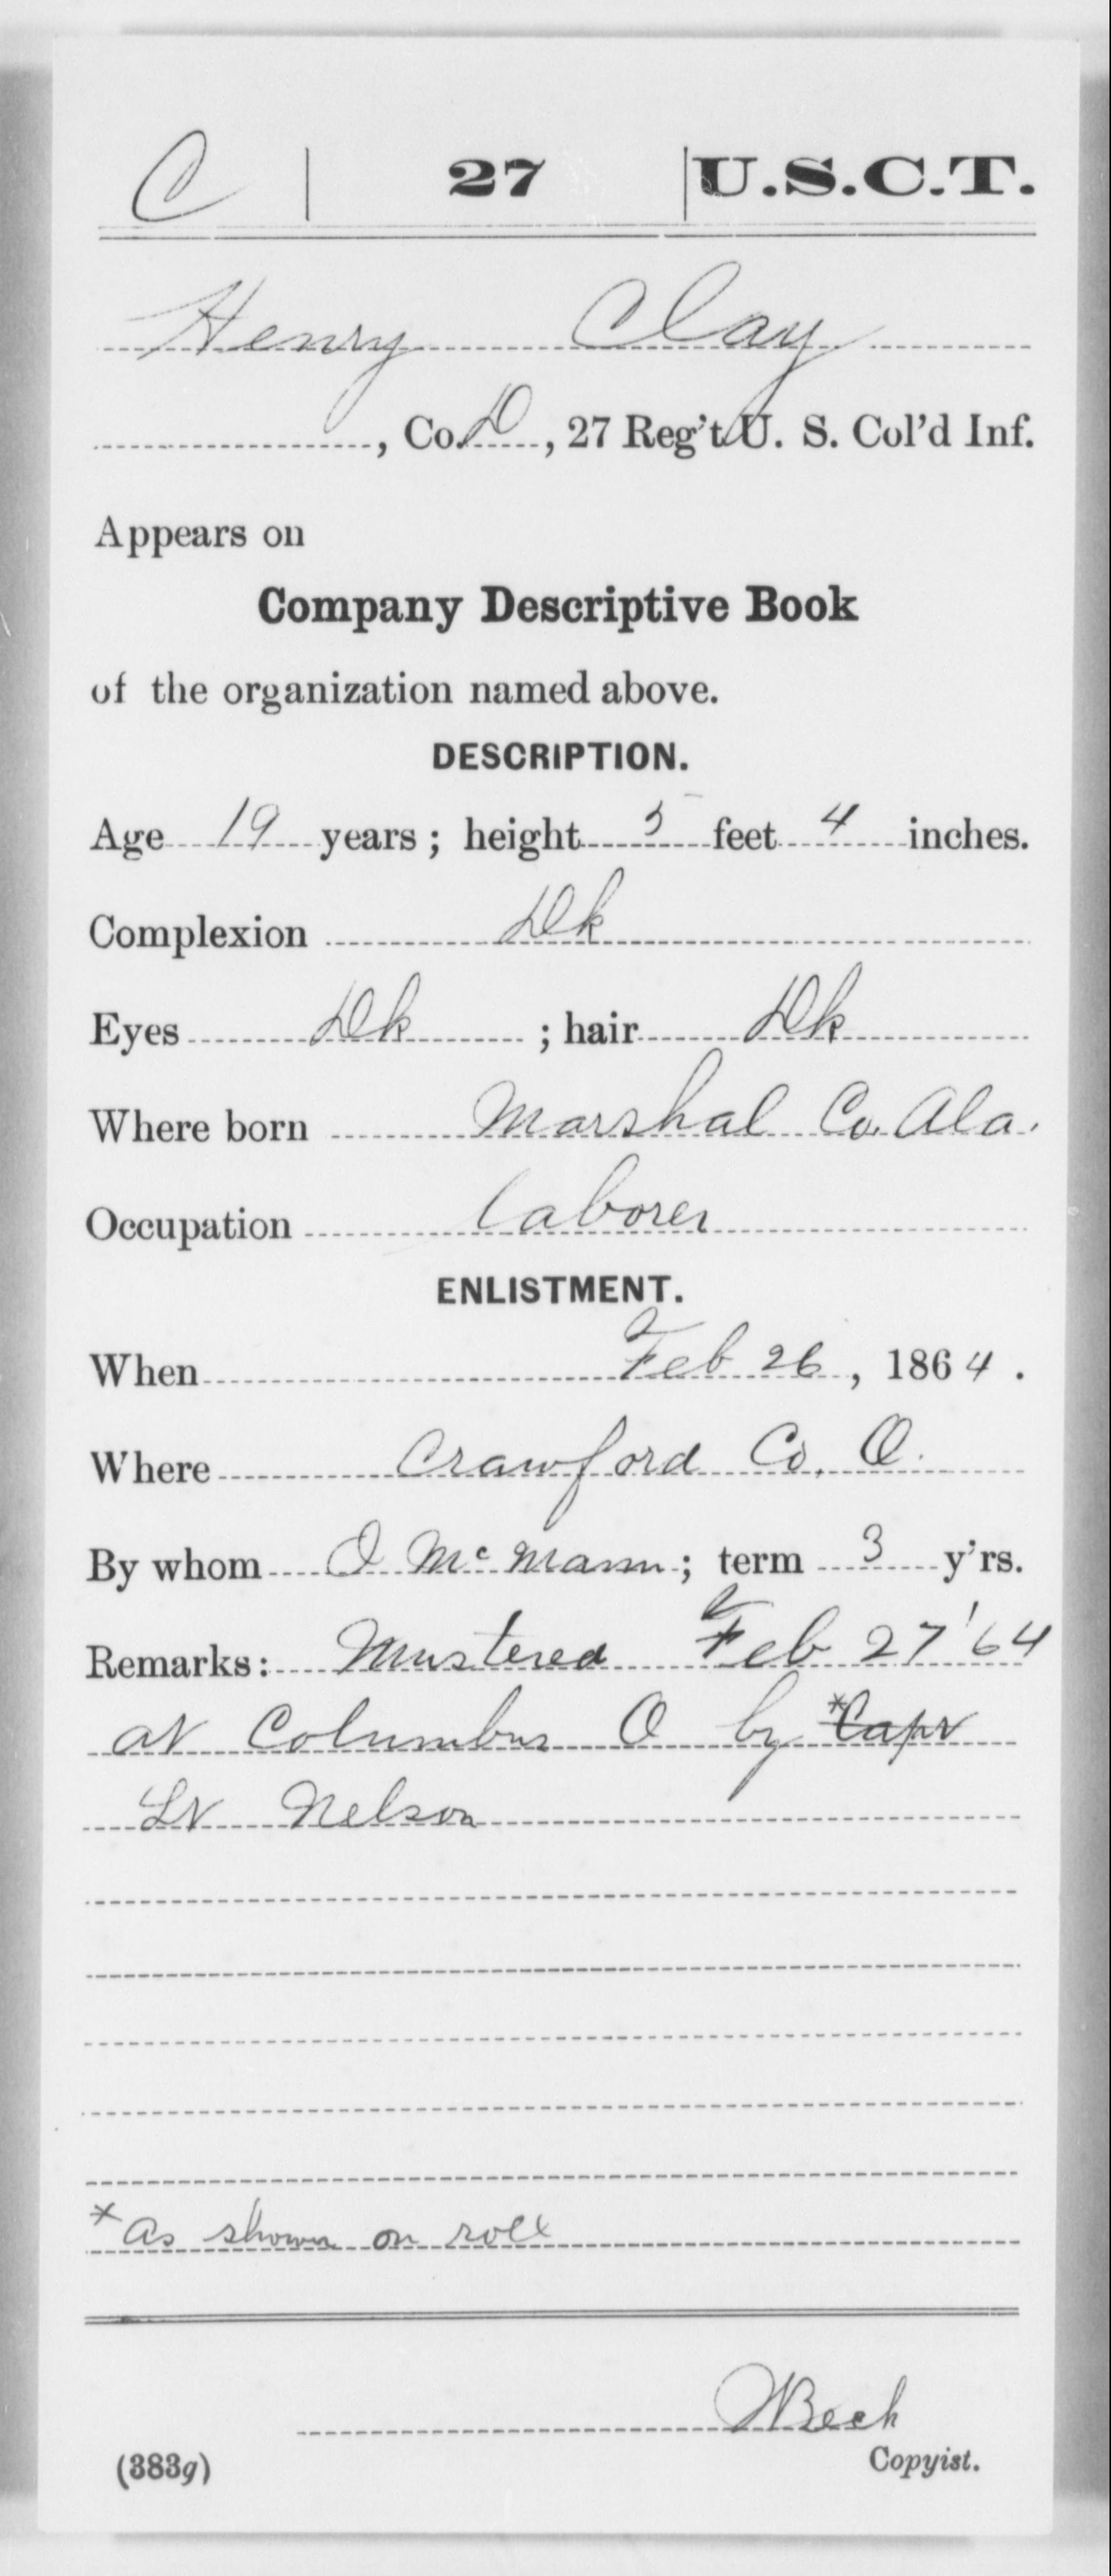 C | 27 | U.S.C.T.
Henry Clay
, Co. D, 27 Reg't U. S. Col'd Inf.
Appears on
Company Descriptive Book
of the organization named above.
DESCRIPTION.
Age 19 years; height 5 feet 4 inches.
Complexion Dk
Eyes Dk ; hair Dk
Where born Marshal Co. Ala.
Occupation laborer
ENLISTMENT.
When Feb 26, 1864.
Where Crawford Co. O.
By whom O McMann; term 3 y'rs.
Remarks: Mustered Feb 27 '64
at Columbus O by *Capt
Lt Nelson
*As shown on roll
WBeck
(383g) Copyist.